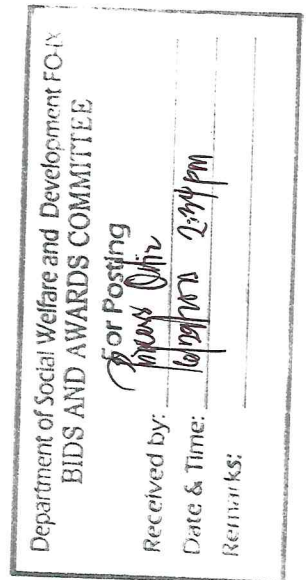 Department of Social Welfare and Development FO-IX
BIDS AND AWARDS COMMITTEE
For Posting
Received by:
Date & Time: 2:34 pm
Remarks: